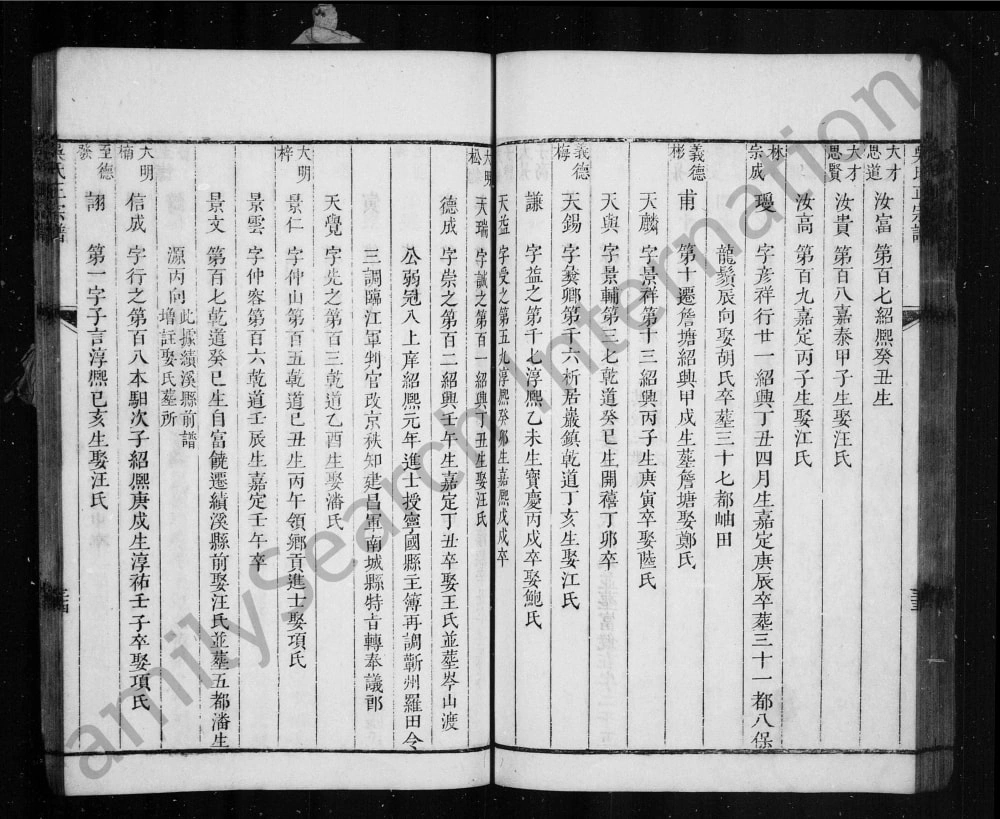 吳氏正宗譜
大才
思道
汝富 第百七紹熙癸丑生
大才
思賢
汝貴 第百八嘉泰甲子生娶汪氏
汝高 第百九嘉定丙子生娶江氏
林
宗成
璦 字彥祥行廿一紹興丁丑四月生嘉定庚辰卒塟三十一都八保
龍鬚辰向娶胡氏卒塟三十七都岫田
義德
彬
甫 第十遷詹塘紹興甲戍生塟詹塘娶鄭氏
天麟 字景祥第十三紹興丙子生庚寅卒娶陸氏
天與 字景輔第三七乾道癸巳生開禧丁夘卒
義德
梅
天錫 字 鄉第千六析居巖鎮乾道丁亥生娶江氏
謙 字益之第千七淳熙乙未生寶慶丙戍卒娶鮑氏
天益 字受之第五九淳熙癸夘生嘉熙戊戍卒
大明
松
天瑞 字誠之第百一紹興丁丑生娶汪氏
德成 字崇之第百二紹興壬午生嘉定丁丑卒娶王氏並塟岑山渡
公弱冠入上庠紹熙元年進士授寧國縣主簿再調蘄州羅田令
三調臨江軍判官改京秩知建昌軍南城縣特旨轉奉議郎
天覺 字先之第百三乾道乙酉生娶潘氏
大明
梓
景仁 字仲山第百五乾道己丑生丙午領鄉貢進士娶項氏
景雲 字仲容第百六乾道壬辰生嘉定壬午卒
景文 第百七乾道癸巳生自富饒遷績溪縣前娶汪氏並塟五都潘生
源丙向 此據績溪縣前譜
增註娶氏墓所
大明
楠
信成 字行之第百八本馹次子紹熙庚戍生淳祐壬子卒娶項氏
至德
發
詡 第一字子言淳熙己亥生娶汪氏
吳氏正宗譜
FamilySearch International